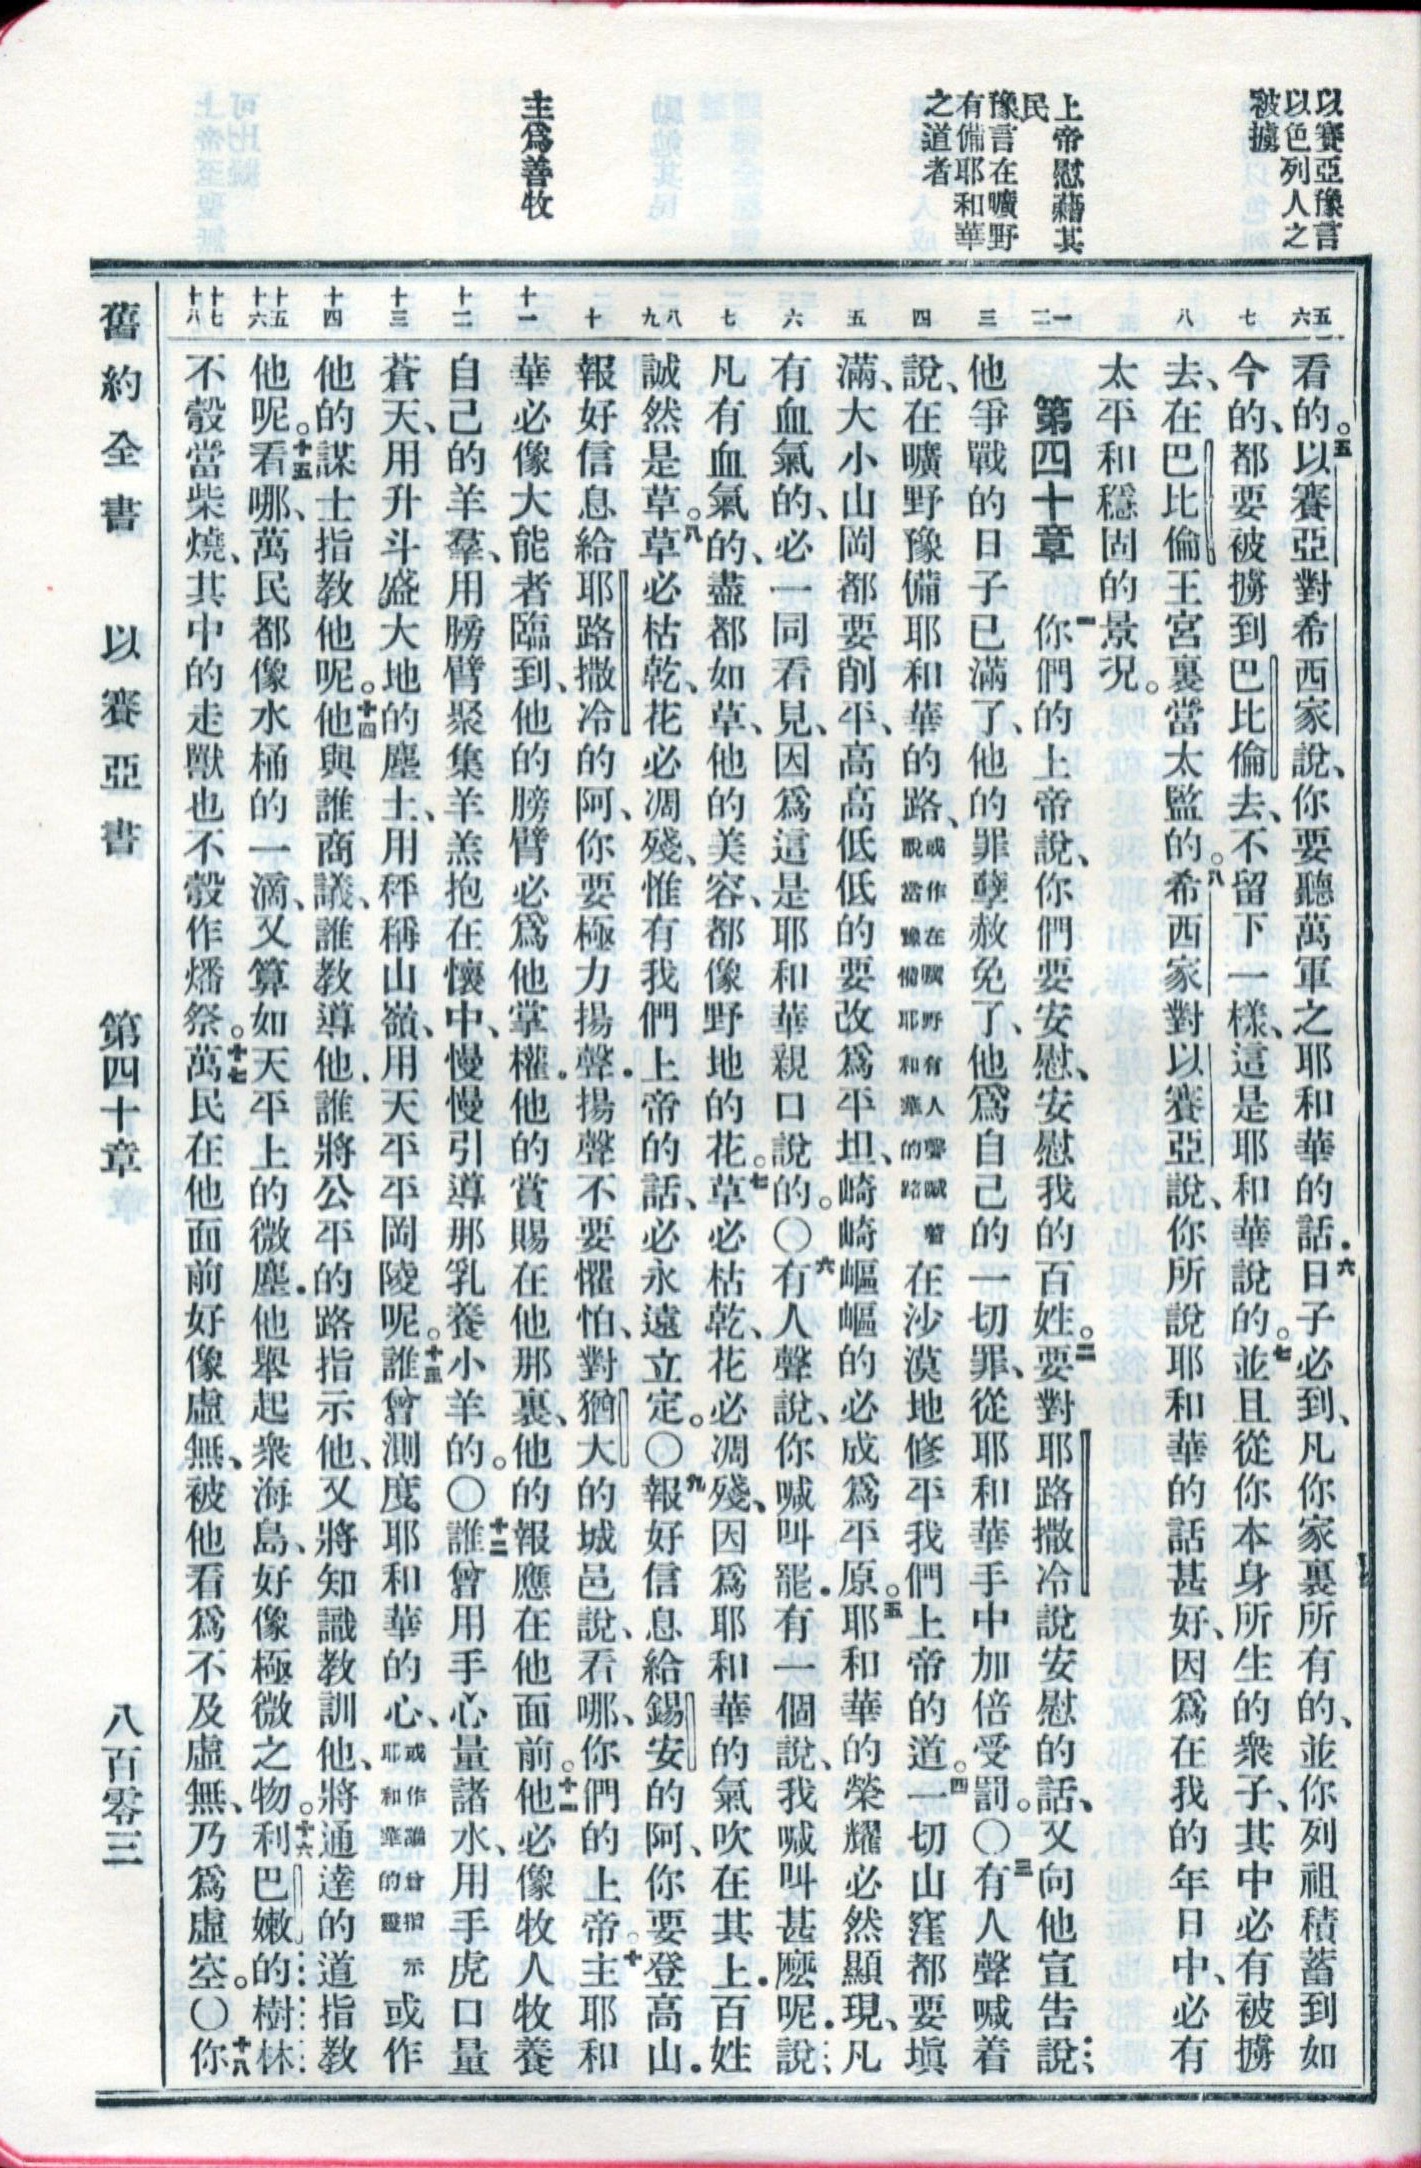 以賽亞豫言
以色列人之
被擄
上帝慰藉其
民
豫言在曠野
有備耶和華
之道者
主爲善牧
五
六
七
八
一
二
三
四
五
六
七
八
九
十
十一
十二
十三
十四
十五
十六
十七
十八
看的。五以賽亞對希西家說、你要聽萬軍之耶和華的話．六日子必到、凡你家裏所有的、並你列祖積蓄到如
今的、都要被擄到巴比倫去、不留下一樣、這是耶和華說的。七並且從你本身所生的衆子、其中必有被擄
去、在巴比倫王宮裏當太監的。八希西家對以賽亞說、你所說耶和華的話甚好、因爲在我的年日中、必有
太平和穩固的景況。
第四十章　一你們的上帝說、你們要安慰、安慰我的百姓。二要對耶路撒冷說安慰的話、又向他宣告說、
他爭戰的日子已滿了、他的罪孽赦免了、他爲自己的一切罪、從耶和華手中加倍受罰。〇三有人聲喊着
說、在曠野豫備耶和華的路、或作在曠野有人聲喊着說當豫備耶和華的路在沙漠地修平我們上帝的道。四一切山窪都要塡
滿、大小山岡都要削平、高高低低的要改爲平坦、崎崎嶇嶇的必成爲平原。五耶和華的榮耀必然顯現、凡
有血氣的、必一同看見、因爲這是耶和華親口說的。〇六有人聲說、你喊叫罷．有一個說、我喊叫甚麼呢．說、
凡有血氣的、盡都如草、他的美容、都像野地的花。七草必枯乾、花必凋殘、因爲耶和華的氣吹在其上．百姓
誠然是草。八草必枯乾、花必凋殘、惟有我們上帝的話、必永遠立定。〇九報好信息給錫安的阿、你要登高山．
報好信息給耶路撒冷的阿、你要極力揚聲．揚聲不要懼怕、對猶大的城邑說、看哪、你們的上帝。十主耶和
華必像大能者臨到、他的膀臂必爲他掌權．他的賞賜在他那裏、他的報應在他面前。十一他必像牧人牧養
自己的羊羣、用膀臂聚集羊羔抱在懷中、慢慢引導那乳養小羊的。〇十二誰曾用手心量諸水、用手虎口量
蒼天、用升斗盛大地的塵土、用秤稱山嶺、用天平平岡陵呢。十三誰曾測度耶和華的心、或作誰曾指示耶和華的靈或作
他的謀士指教他呢。十四他與誰商議、誰教導他、誰將公平的路指示他、又將知識教訓他、將通達的道指教
他呢。十五看哪、萬民都像水桶的一滴、又算如天平上的微塵．他舉起衆海島、好像極微之物。十六利巴嫩的樹林
不彀當柴燒、其中的走獸也不彀作燔祭。十七萬民在他面前好像虛無、被他看爲不及虛無、乃爲虛空。〇十八你
舊約全書　以賽亞書　第四十章　八百零三